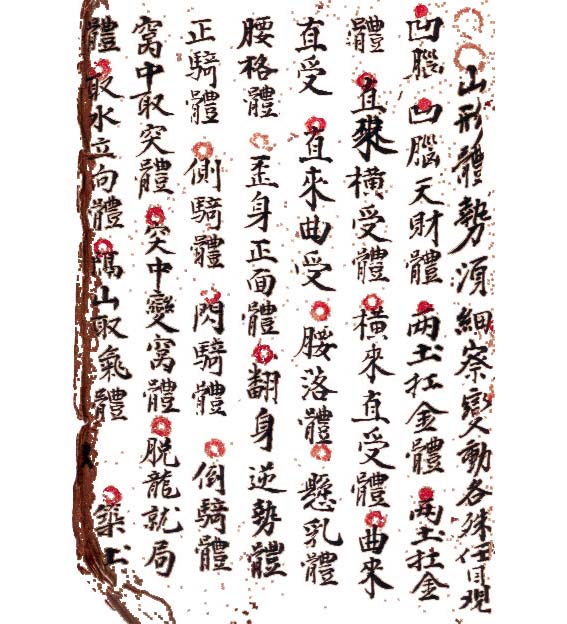 山形體勢須細察變動各殊任目觀
凹腦 凹腦天財體 兩土扛金體 兩土扛金
體 直來橫受體 橫來直受體 曲來
直受 直來曲受 腰落體 懸乳體
腰格體 歪身正面體 翻身逆勢體
正騎體 側騎體 閃騎體 倒騎體
窩中取突體 突中變窩體 脫龍就局
體 取水立向體 隔山取氣體 築土